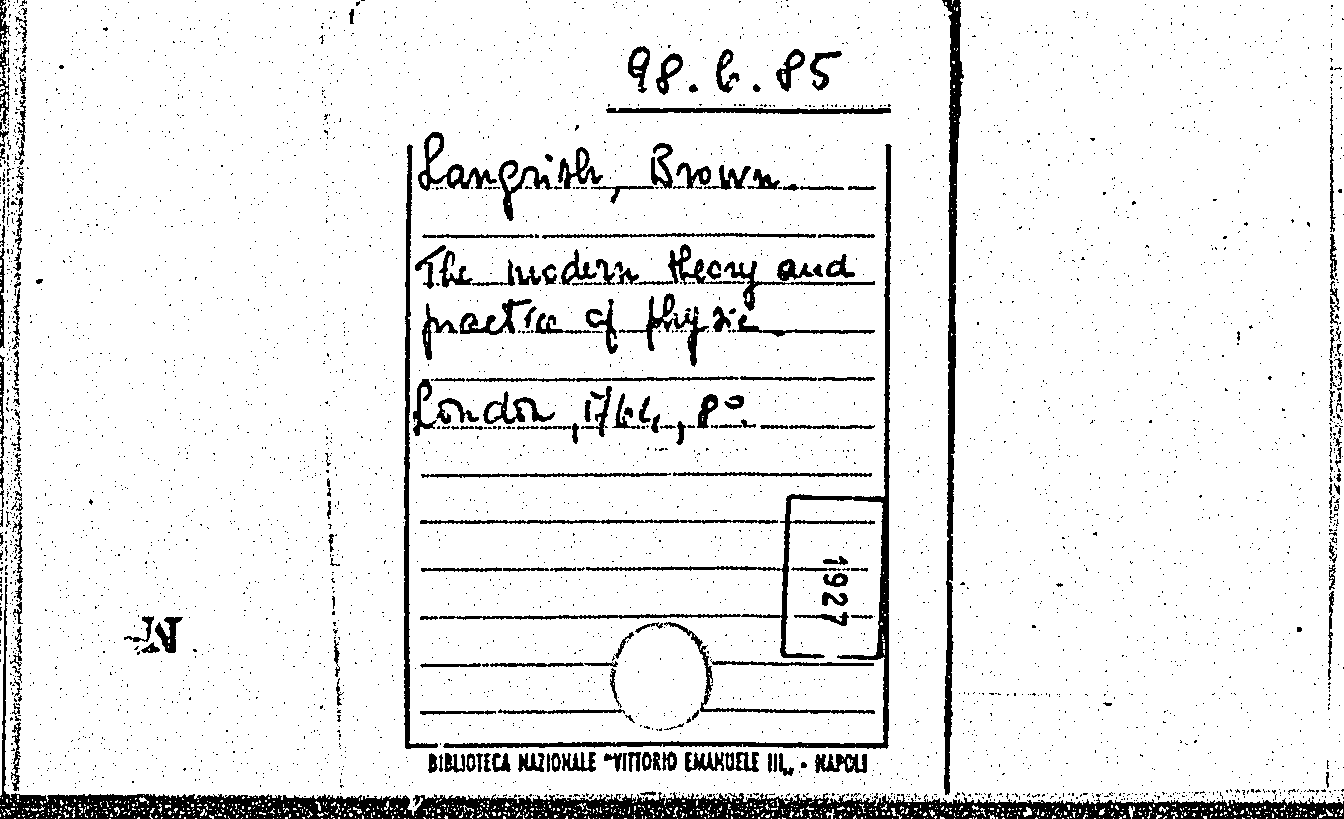 98.6.85
Langrish, Brown.
The modern theory and
practice of physic.
London, 1764, 8°.
1927
BIBLIOTECA NAZIONALE "VITTORIO EMANUELE III„ - NAPOLI